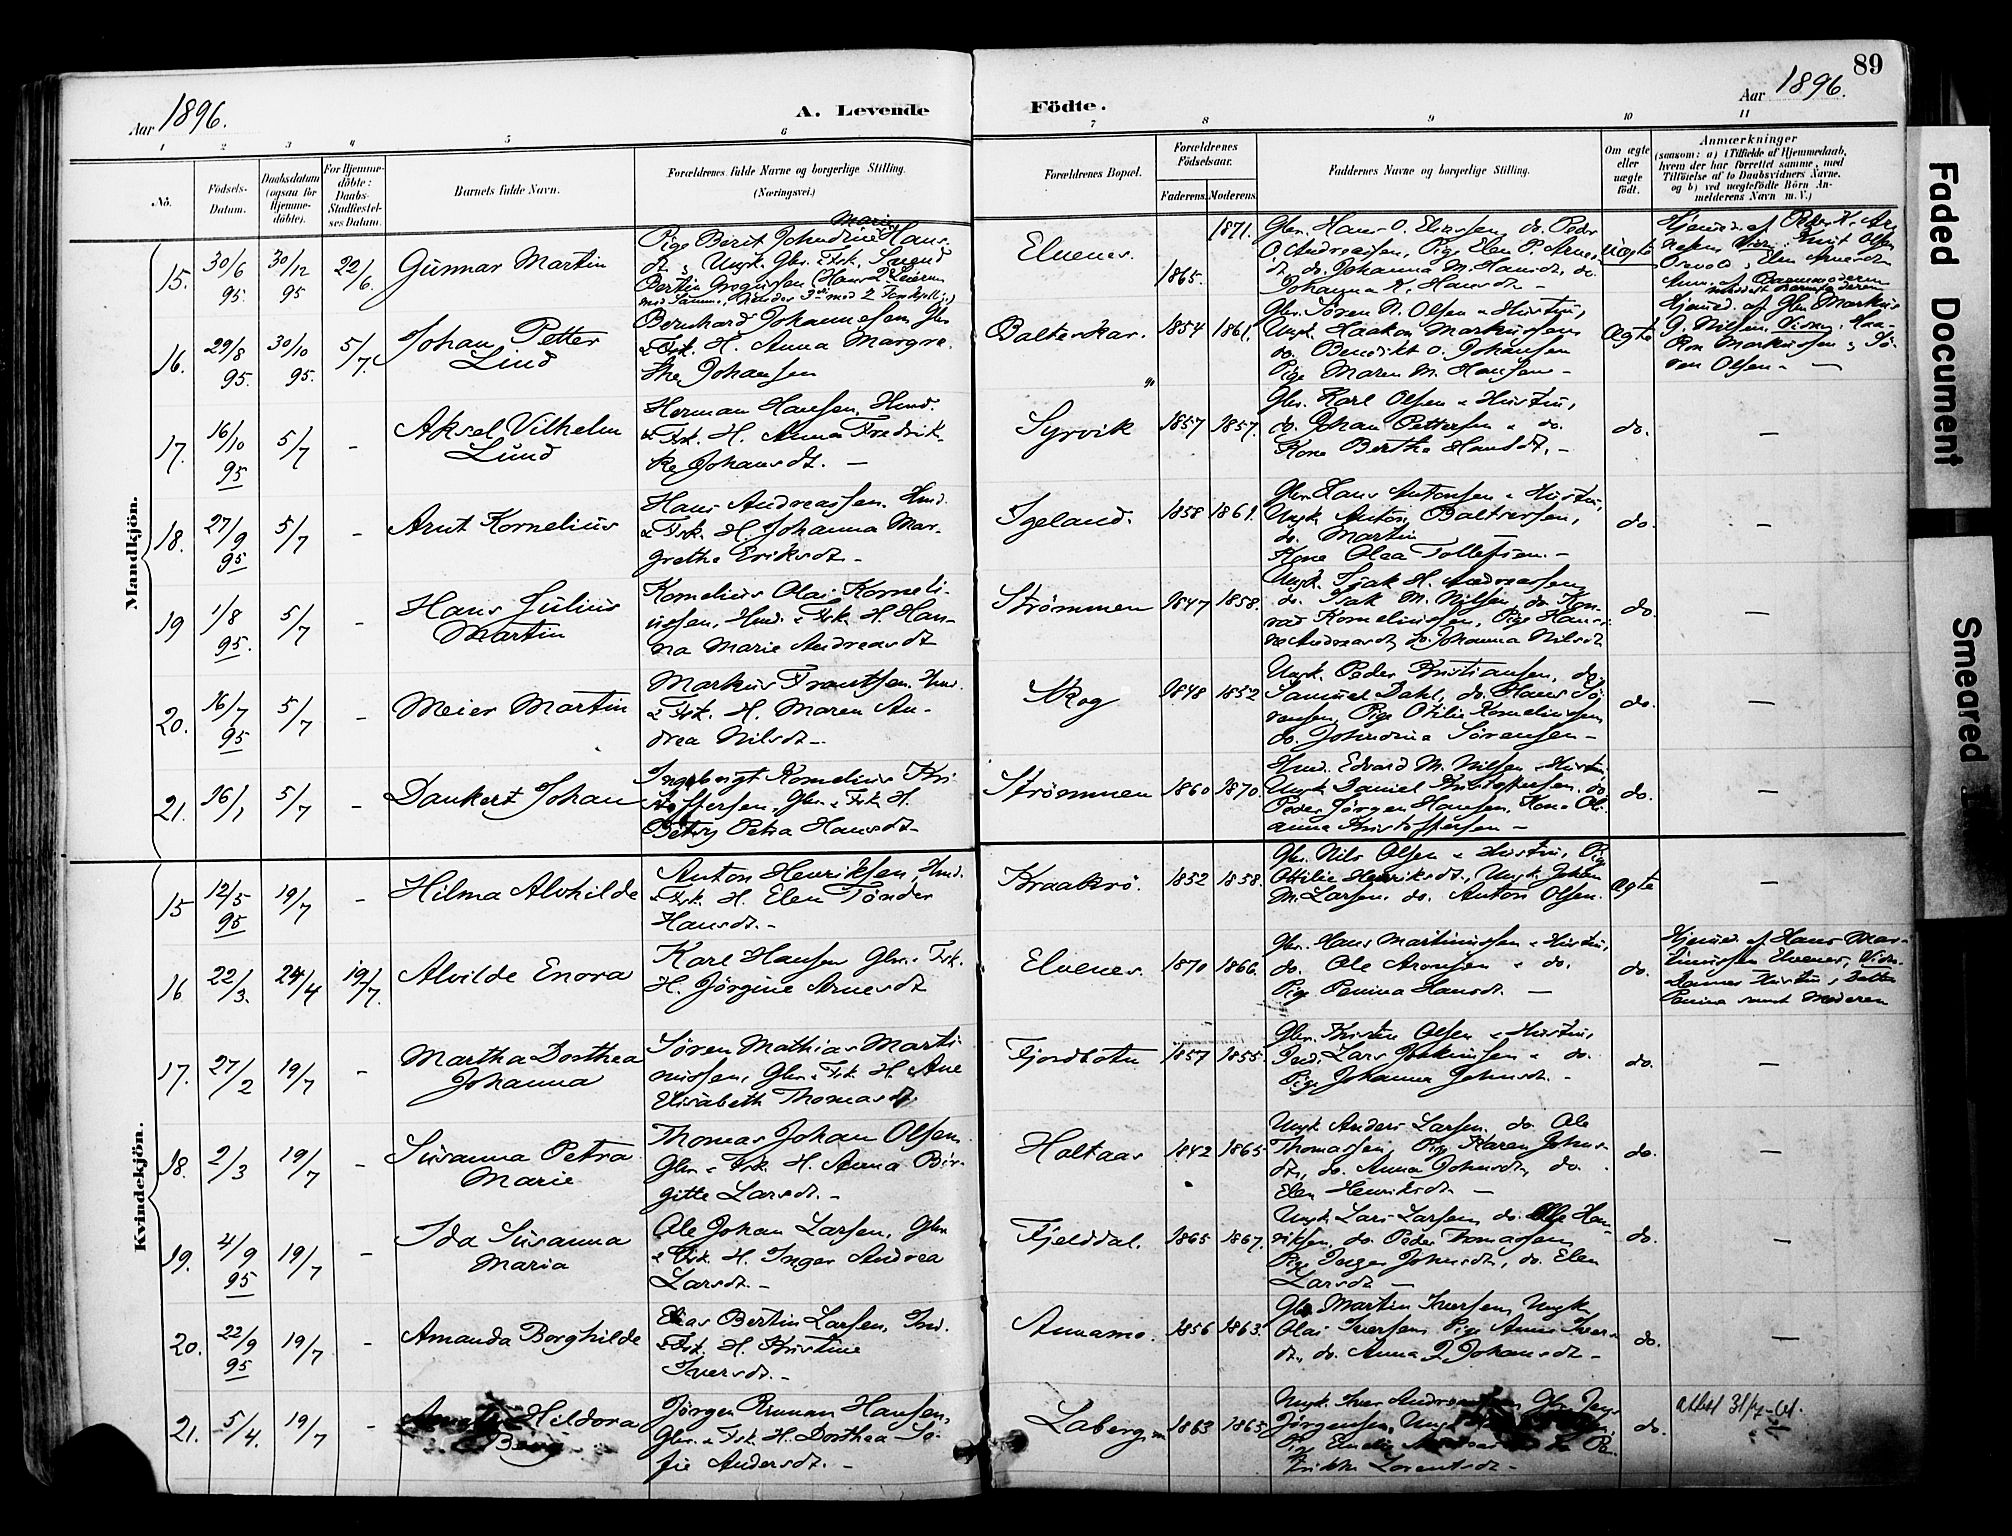 89
Aar 1896.
A. Levende Födte.
Aar 1896.
1 2 3 4 5 6 7 8 9 10 11
No.
Födsels-Datum.
Daabsdatum (ogsaa for Hjemme-döbte).
For Hjemme-döbte: Daabs-Stadfæstel-ses Datum.
Barnets fulde Navn.
Forældrenes fulde Navne og borgerlige Stilling. (Næringsvei.)
Forældrenes Bopæl.
Forældrenes Födselsaar.
Faderens. Moderens.
Faddernes Navne og borgerlige Stilling.
Om ægte eller uægte födt.
Anmærkninger
(saasom: a) i Tilfælde af Hjemmedaab, hvem der har forrettet samme, med Tilföielse af to Daabsvidners Navne, og b) ved uægtefödte Börn Anmelderens Navn m. V.)
Mandkjön.
15. 30/6 95. 30/12 95 22/6. Gunnar Martin
Pige Berit Johndine Marie Hansdt.
Elvenes. 1865. 1871.
uægte
16. 29/8 95. 30/10 95. 5/7. Johan Petter Lind
Bernhard Johannesen, Gbr.
& Frk. H. Anna Margre-
the Johansen
Balteskar. 1854 1861.
Gbr. Søren N. Olsen & Hustru,
Ungk. Haakon Markussen
do. Benedikt O. Johansen
Pige Maren M. Hansen –
Ægte
17. 16/10 95 5/7 - Aksel Vilhelm Lund
Herman Hansen, Hmd.
& Frk. H. Anna Fredrik-
ke Johansdt. –
Syrvik 1857 1857.
Gbr. Karl Olsen & Hustru,
do. Johan Pettersen & do.
Kone Berthe Hansdt. –
do. –
18. 27/9 95 5/7 - Arnt Kornelius
Hans Andreassen. Hmd.
& Frk. H. Johanna Mar-
grethe Eriksdt –
Igeland. 1858 1861.
Gbr. Hans Antonsen & Hustru,
Ungk. Anton Baltsersen,
do. Martin –
Kone Olea Tollefsen. –
do. –
19 1/8 95. 5/7 - Hans Julius Martin
Kornelius Olai Korneli-
ussen, Hmd. & Frk. H. Han-
na Marie Andreasdt
Strømmen 1847 1858.
Ungk. Isak H. Andreassen
do. Isak M. Nilsen, do. Kon-
rad Korneliussen, Pige Hans-
ine Andreasdt, do. Johanna Nilsdt
do. –
20. 16/7 95 5/7 - Meier Martin
Markus Frantsen. Hmd.
& Frk. H. Maren An-
drea Nilsdt –
Skog 1848 1852
Ungk. Peder Kristiansen, do.
Samuel Dahl, do. Hans Sø-
rensen, Pige Otilie Korneliussen
do. Johndine Sørensen –
do. –
21. 16/1 5/7 - Dankert Johan
Ingebrigt Kornelius Kri-
stoffersen, Gbr. & Frk. H.
Betsy Petra Hansdt –
Strømmen 1860 1870.
Hmd. Edvard M. Nilsen & Hustru
Ungk. Daniel Kristoffersen, do.
Peder Jørgen Hansen, Kone Oli-
anna Kristoffersen –
do. –
Kvindekjön.
15 12/5 95 19/7 - Hilma Alvhilde
Anton Henriksen, Hmd.
& Frk. H. Elen Tønder
Hansdt. –
Kraakrø. 1852 1858.
Gbr. Nils Olsen & Hustru, Pige
Ottilie Henriksdt., Ungk. Johan
M. Larsen, do. Anton Olsen.
Ægte –
16 22/3. 24/4 19/7. Alvilde Enora
Karl Hansen Gbr. & Frk.
H. Jørgine Arnesdt
Elvenes. 1870 1866.
Gbr. Hans Martinussen & Hustru,
do. Ole Aronsen & do.
Pige Penina Hansdt. –
do.
Hjemmed. af Hans Mar-
tinussen Elvenes, Vidn.
Dennes Hustru & Datter
Penina samt Moderen
17. 27/2 19/7 - Martha Dorthea Johanna
Søren Mathias Marti-
nussen, Gbr. & Frk. H. Ane
Elisabeth Thomasdt.
Fjordbotn 1857 1855.
Gbr. Kristen Olsen & Hustru,
Ind. Lars Joakimsen & do.
Pige Johanna Johnsdt. –
do. –
18. 2/3 19/7 - Susanna Petra Marie
Thomas Johan Olsen
Gbr. & Frk. H. Anna Bir-
gitte Larsdt. –
Holtaas 1842 1865
Ungk. Anders Larsen, do. Ole
Thomassen, Pige Karen Johns-
dt., do. Anna Johnsdt, do.
Elen Henriksdt. –
do. –
19. 4/9 95 19/7 - Ida Susanna Maria
Ole Johan Larsen, Gbr.
& Frk. H. Inger Andrea
Larsdt. –
Fjelddal. 1865 1867.
Ungk. Lars Larsen, do. Ole Hen-
riksen, do. Peder Tomassen,
Pige Inger Johnsdt, do. Elen
Larsdt –
do. –
20. 22/9 95 19/7 - Amanda Borghilde
Elias Bertin Larsen, Ind.
& Frk. H. Kristine
Iversdt. –
Annamo. 1856 1863.
Gbr. Martin Iversen, Ungk.
Olai Iversen, Pige Anna Ivers-
dt., do. Anna J. Johansdt –
do. –
21. 5/4. 19/7 - Hildora Berg
Jørgen Hansen,
Gbr. & Frk. H. Dorthea So-
fie Andersdt. –
Laberg 1863 1865
Ungk. Iver
Jørgensen, Ungk.
Lorentsdt –
do.
attest 31/7-01.
Faded Document
Smeared